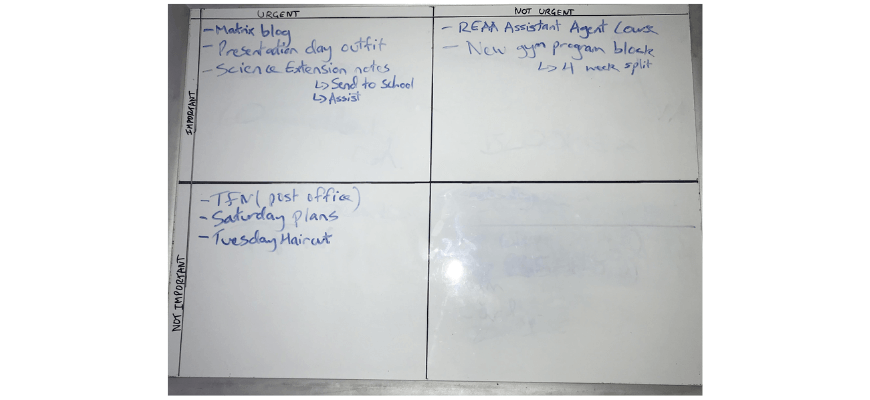 URGENT
NOT URGENT
IMPORTANT
- Matrix blog
- Presentation day outfit
- Science Extension notes
↳ Send to school
↳ Assist
- REAA Assistant Agent Course
- New gym program block
↳ 4 week split
NOT IMPORTANT
- TFN (post office)
- Saturday plans
- Tuesday Haircut